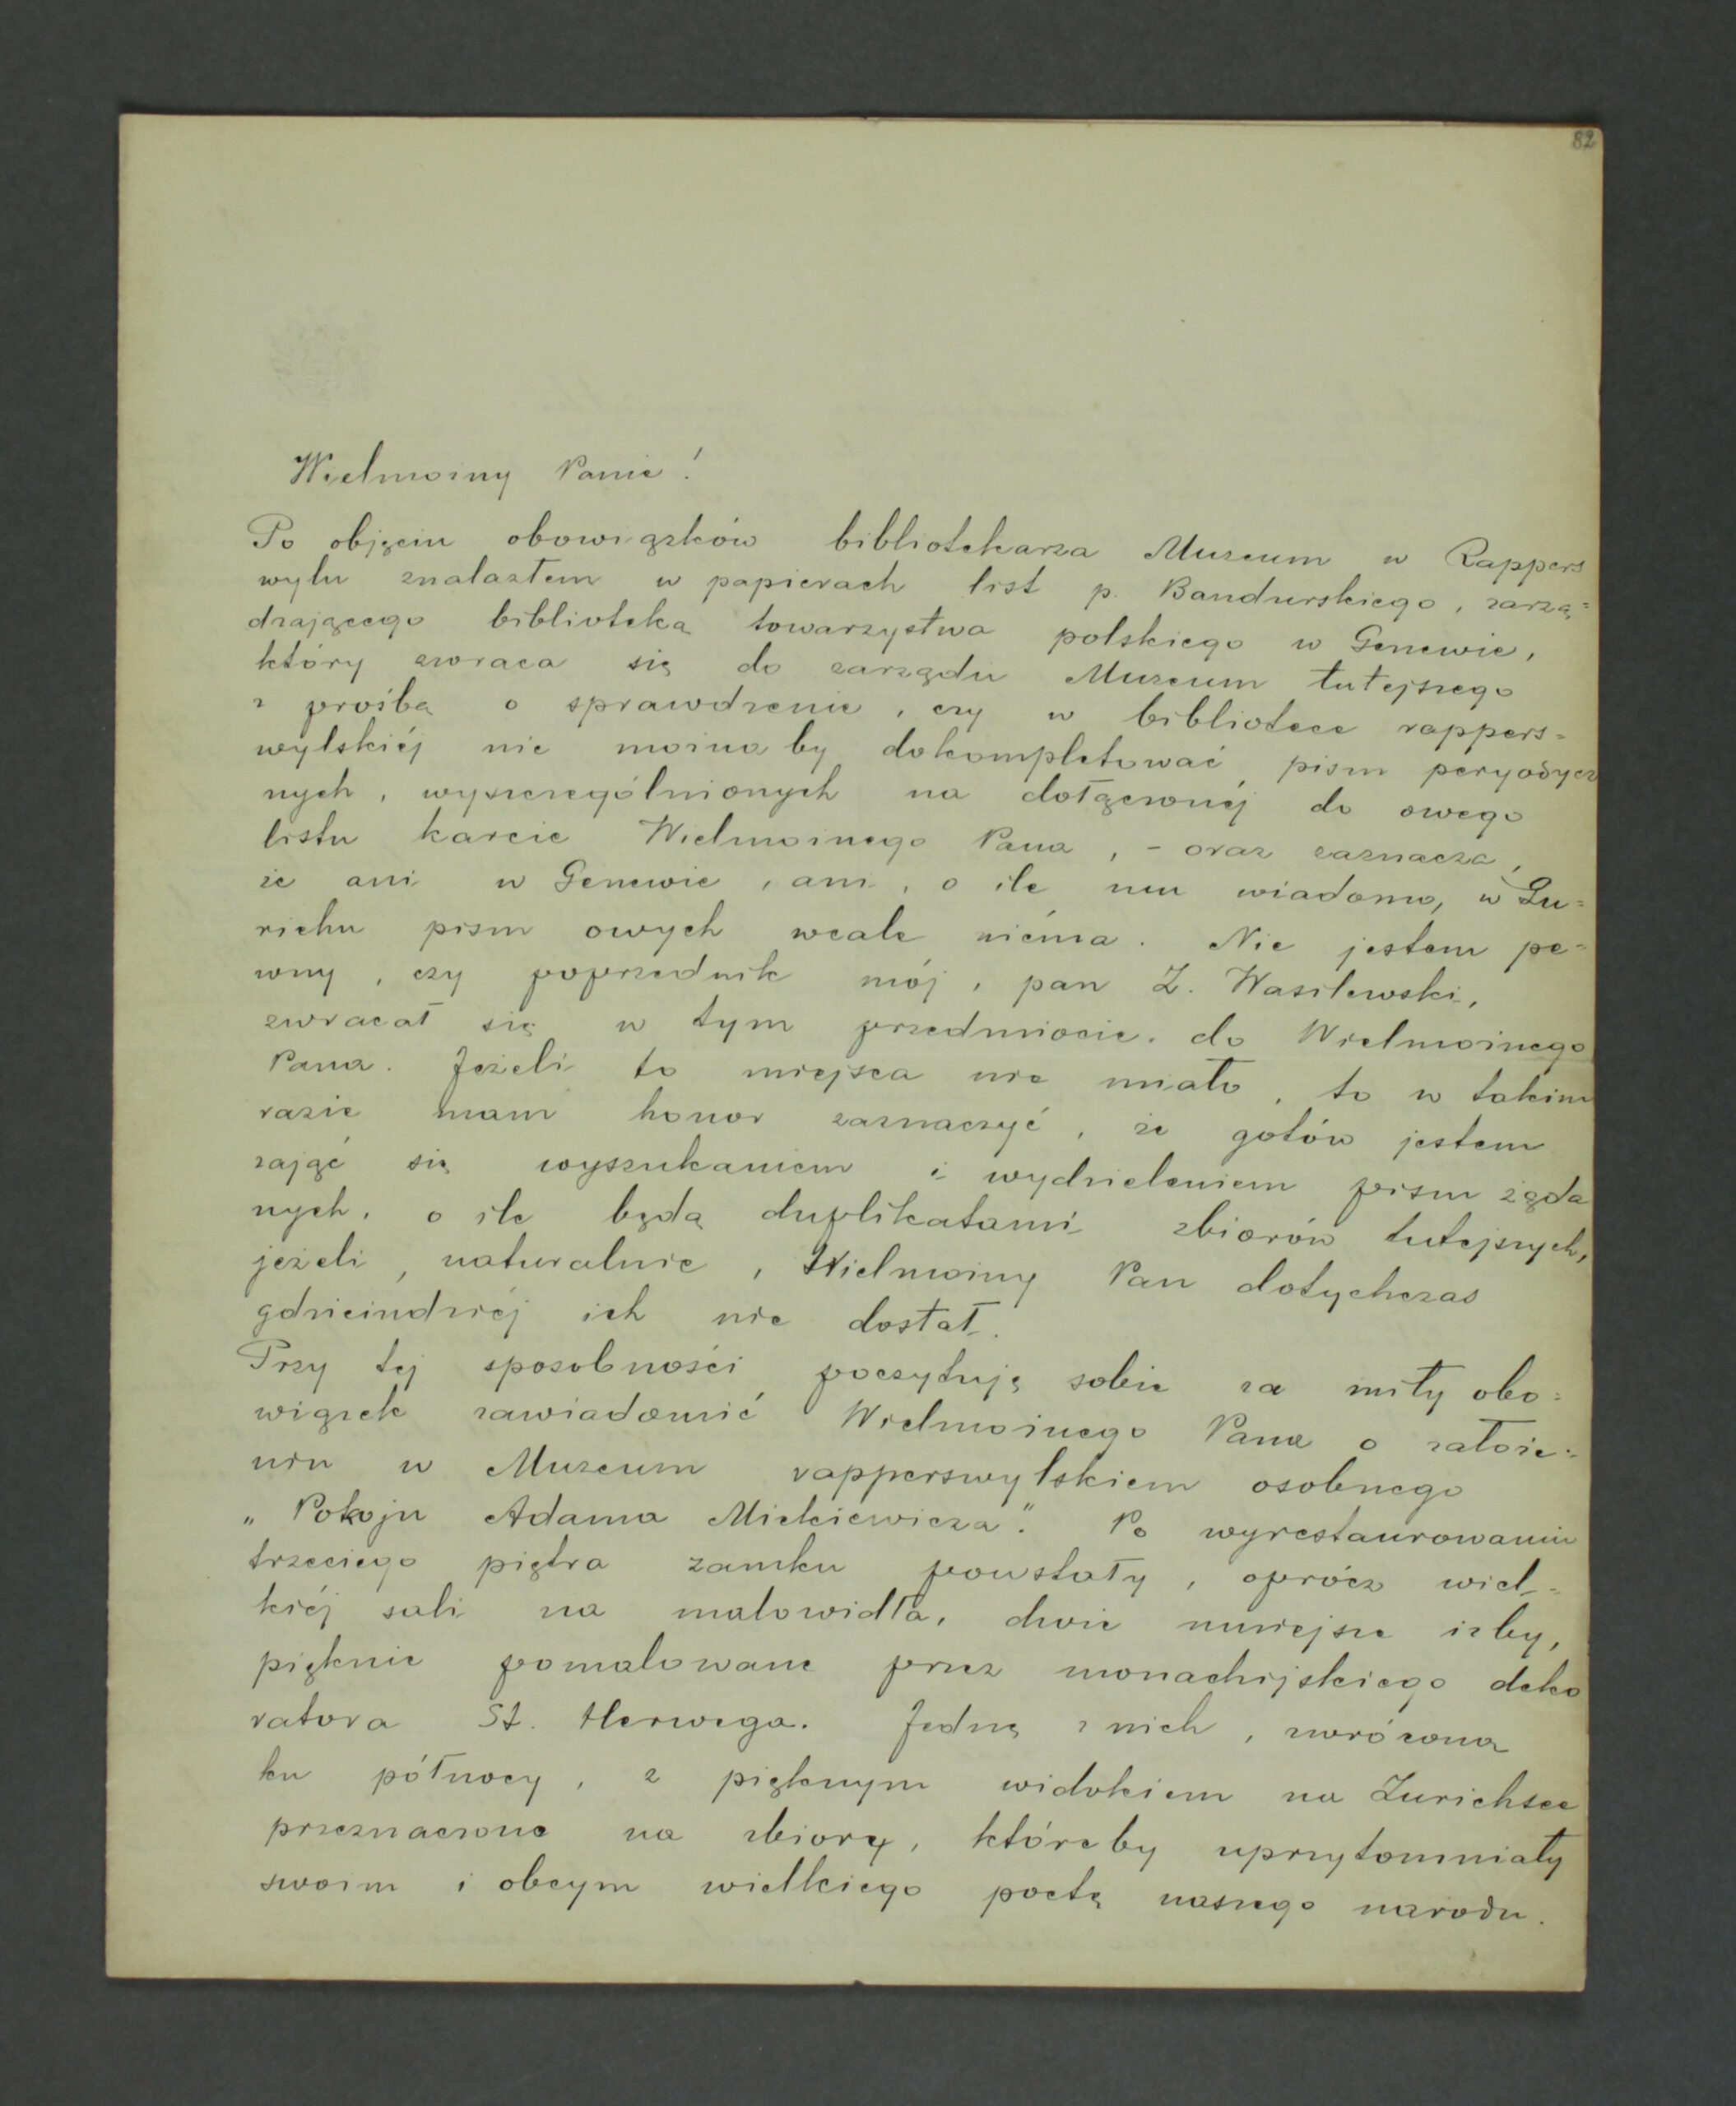 82
Wielmożny Panie!
Po objęciu obowiązków bibliotekarza Muzeum w Rappers
wylu znalazłem w papierach list p. Bandurskiego, zarzą=
dzającego biblioteką towarzystwa polskiego w Genewie,
który zwraca się do zarządu Muzeum tutejszego
z prośbą o sprawdzenie, czy w bibliotece rappers=
wylskiéj nie możnaby dokompletować pism peryodycz
nych, wyszczególnionych na dołączonéj do owego
listu karcie Wielmożnego Pana, - oraz zaznacza,
że ani w Genewie, ani, o ile mu wiadomo, w Zu=
richu pism owych wcale niéma. Nie jestem pe=
wny, czy poprzednik mój, pan Z. Wasilewski,
zwracał się w tym przedmiocie do Wielmożnego
Pana. Jeżeli to miejsca nie miało, to w takim
razie mam honor zaznaczyć, że gotów jestem
zająć się wyszukaniem i wydzieleniem pism żąda
nych, o ile będą duplikatami zbiorów tutejszych,
jeżeli, naturalnie, Wielmożny Pan dotychczas
gdzieindziéj ich nie dostał.
Przy tej sposobności poczytuję sobie za miły obo=
wiązek zawiadomić Wielmożnego Pana o założe=
niu w Muzeum rapperswylskiem osobnego
„Pokoju Adama Mickiewicza". Po wyrestaurowaniu
trzeciego piętra zamku powstały, oprócz wiel=
kiéj sali na malowidła, dwie mniejsze izby,
pięknie pomalowane przez monachijskiego deko
ratora St. Herwega. Jedną z nich, zwróconą
ku północy, z pięknym widokiem na Zurichsee
przeznaczono na zbiory, któreby uprzytomniały
swoim i obcym wielkiego poetę naszego narodu.